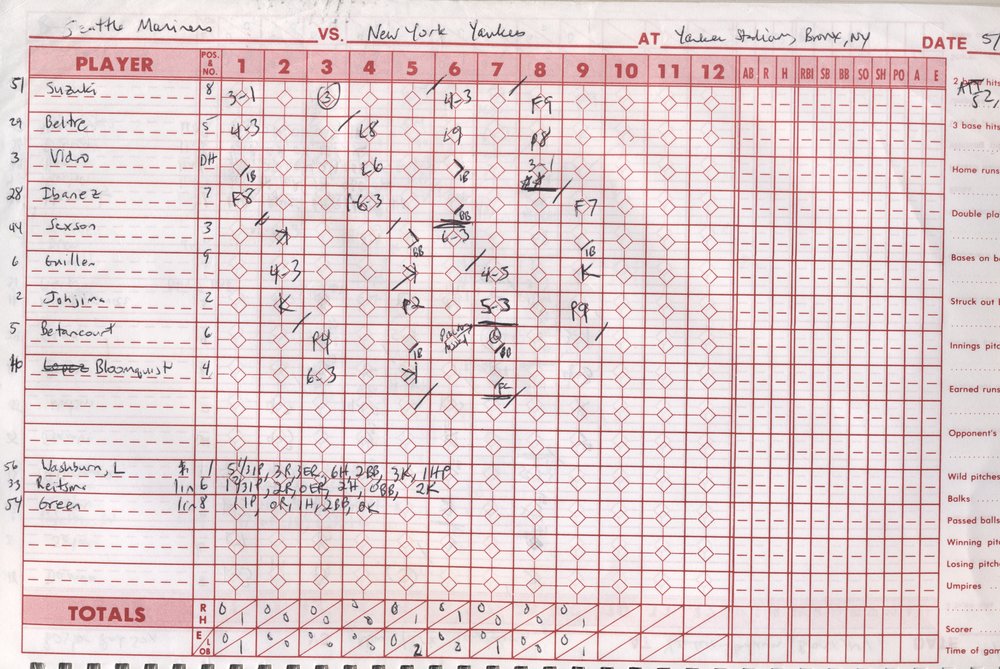 Seattle Mariners VS. New York Yankees AT Yankee Stadium, Bronx, NY DATE 5/
PLAYER POS. & NO. 1 2 3 4 5 6 7 8 9 10 11 12 AB R H RBI SB BB SO SH PO A E
51 Suzuki 8 3-1 3 4-3 F9
29 Beltre 5 4-3 L8 L9 P8
3 Vidro DH 1B L6 1B 3-1
28 Ibanez 7 F8 1-6-3 BB F7
44 Sexson 3 K BB 6-3 1B
6 Guillen 9 4-3 K 4-3 K
2 Johjima 2 K P2 5-3 P9
5 Betancourt 6 P4 1B 6 BB
Lopez Bloomquist 4 6-3 K FC
56 Washburn, L 1 5 1/3 IP, 3R, 3ER, 6H, 2BB, 3K, 1HP
33 Reitsma 1 in 6 1 2/3 IP, 2R, 0ER, 2H, 0BB, 2K
54 Green 1 in 8 1 IP, 0R, 1H, 2BB, 0K
TOTALS R H 0 1 0 0 0 0 0 0 0 1 0 1 0 0 0 0 0 1
E LOB
2 base hits
3 base hits
Home runs
Double pla
Bases on b
Struck out b
Innings pitc
Earned runs
Opponent's
Wild pitches
Balks
Passed balls
Winning pit
Losing pitche
Umpires
Scorer
Time of gam